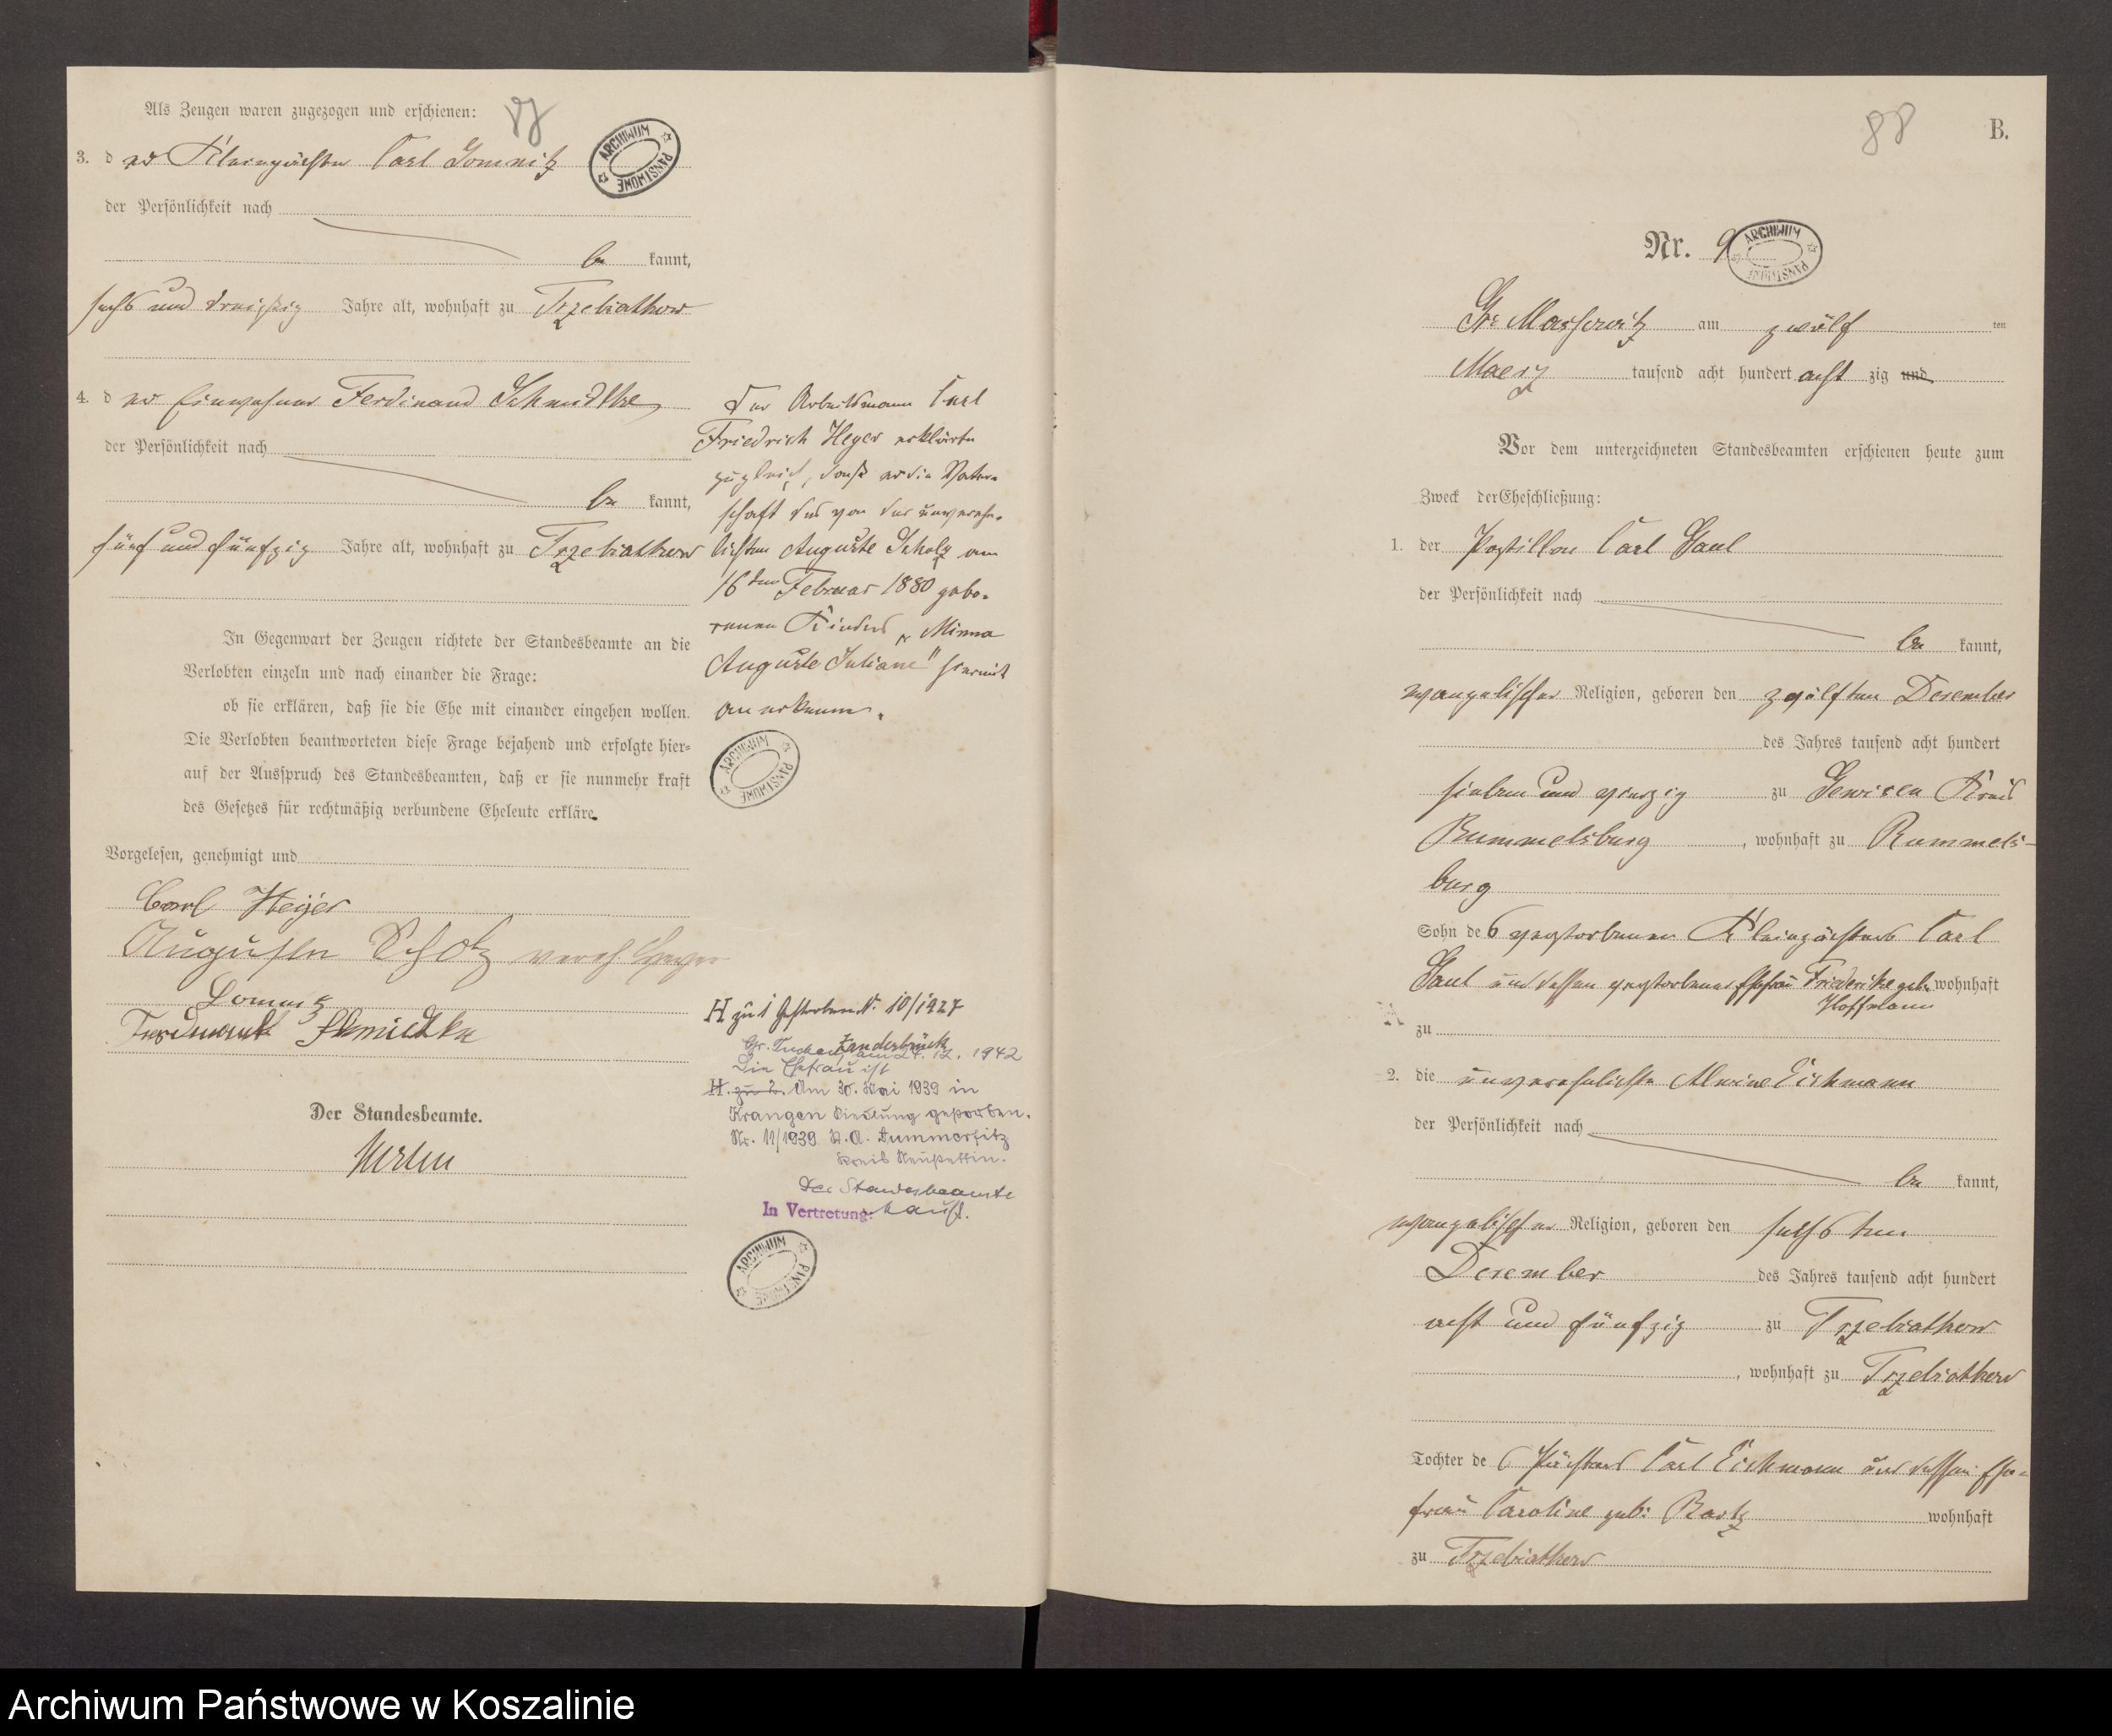 Als Zeugen waren zugezogen und erschienen:
3. der Kleinpächter Carl Lomnitz
ARCHIWUM PAŃSTWOWE
der Persönlichkeit nach
be kannt,
sechs und dreißig Jahre alt, wohnhaft zu Trzebiatkow
4. der Einwohner Ferdinand Schmidtke
der Persönlichkeit nach
be kannt,
fünf und fünfzig Jahre alt, wohnhaft zu Trzebiatkow
In Gegenwart der Zeugen richtete der Standesbeamte an die
Verlobten einzeln und nach einander die Frage:
ob sie erklären, daß sie die Ehe mit einander eingehen wollen.
Die Verlobten beantworteten diese Frage bejahend und erfolgte hier-
auf der Ausspruch des Standesbeamten, daß er sie nunmehr kraft
des Gesetzes für rechtmäßig verbundene Eheleute erkläre.
Vorgelesen, genehmigt und
Carl Heijer
Auguste Scholz vereh. Heyer
Lomnitz
Ferdinand Schmidtke
Der Standesbeamte.
Der Arbeitsmann Carl
Friedrich Heyer erklärte
zugleich, daß er die Vater-
schaft des von der unverehe-
lichten Auguste Scholz am
16ten Februar 1880 gebo-
renen Kindes „Minna
Auguste Juliane" hiermit
anerkenne.
ARCHIWUM PAŃSTWOWE
H zu 1 Gestorben Nr. 10/1927
Gr. Tuchen, am 24. 12. 1942
Die Ehefrau ist
H. zu 2. Am 30. Mai 1939 in
Krangen Siedlung gestorben.
Nr. 11/1939 St.A. Dummerfitz
Kreis Neustettin.
Der Standesbeamte
In Vertretung:
ARCHIWUM PAŃSTWOWE
88
B.
Nr. 9
ARCHIWUM PAŃSTWOWE
Gr. Massowitz am zwölf ten
Maerz tausend acht hundert acht zig und
Vor dem unterzeichneten Standesbeamten erschienen heute zum
Zweck der Eheschließung:
1. der Postillon Carl Saul
der Persönlichkeit nach
be kannt,
evangelischer Religion, geboren den zwölften Dezember
des Jahres tausend acht hundert
sieben und vierzig zu Gewisen Kreis
Rummelsburg, wohnhaft zu Rummels-
burg
Sohn des verstorbenen Kleinpächters Carl
Saul und dessen verstorbener Ehefrau Friederike geb. wohnhaft
Hoffmann
zu
2. die unverehelichte Alwine Eickmann
der Persönlichkeit nach
be kannt,
evangelischer Religion, geboren den sechsten
Dezember des Jahres tausend acht hundert
acht und fünfzig zu Trzebiatkow
, wohnhaft zu Trzebiatkow
Tochter des Pächters Carl Eickmann und dessen Ehe-
frau Caroline geb: Bartz wohnhaft
zu Trzebiatkow
Archiwum Państwowe w Koszalinie